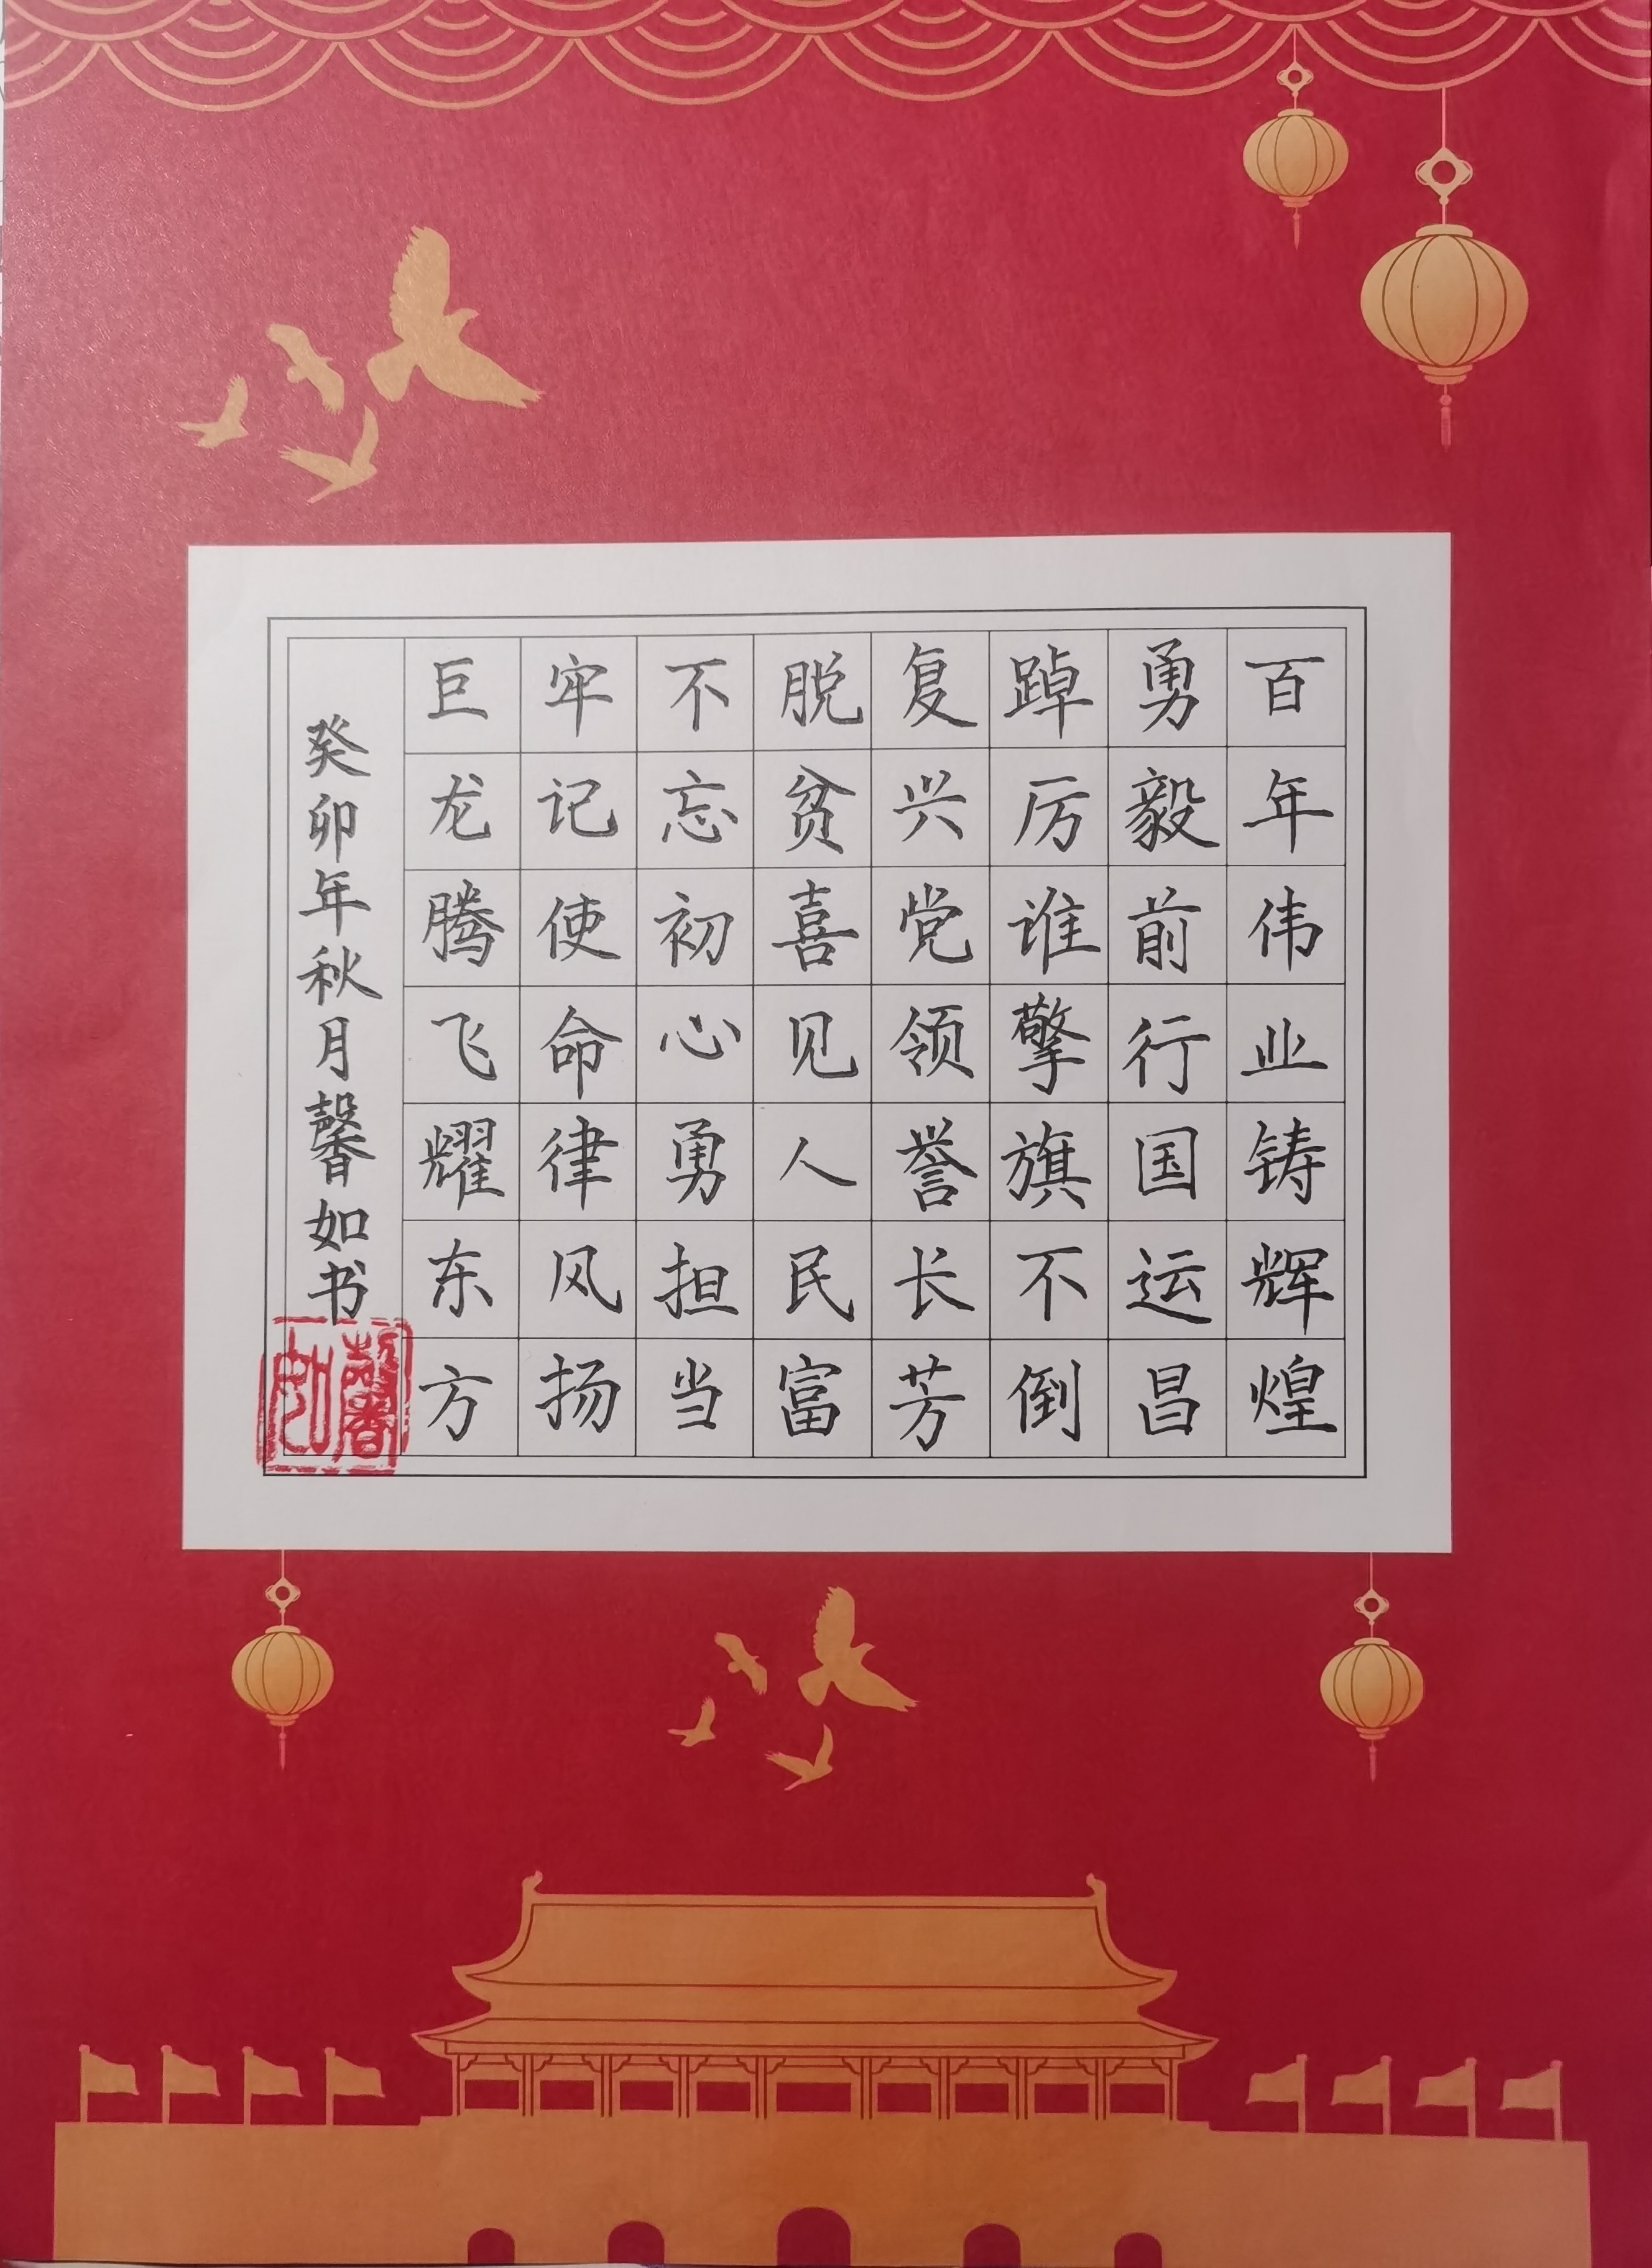 百年伟业铸辉煌
勇毅前行国运昌
踔厉谁擎旗不倒
复兴党领誉长芳
脱贫喜见人民富
不忘初心勇担当
牢记使命律风扬
巨龙腾飞耀东方
癸卯年秋月馨如书
馨如